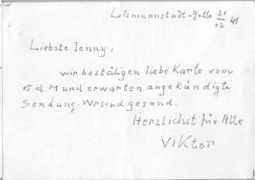 Litzmannstadt-Getto 21/12 41
Liebste Jenny,
wir bestätigen liebe Karte vom
15 d. M und erwarten angekündigte
Sendung. Wir sind gesund.
Herzlichst für Alle
Viktor